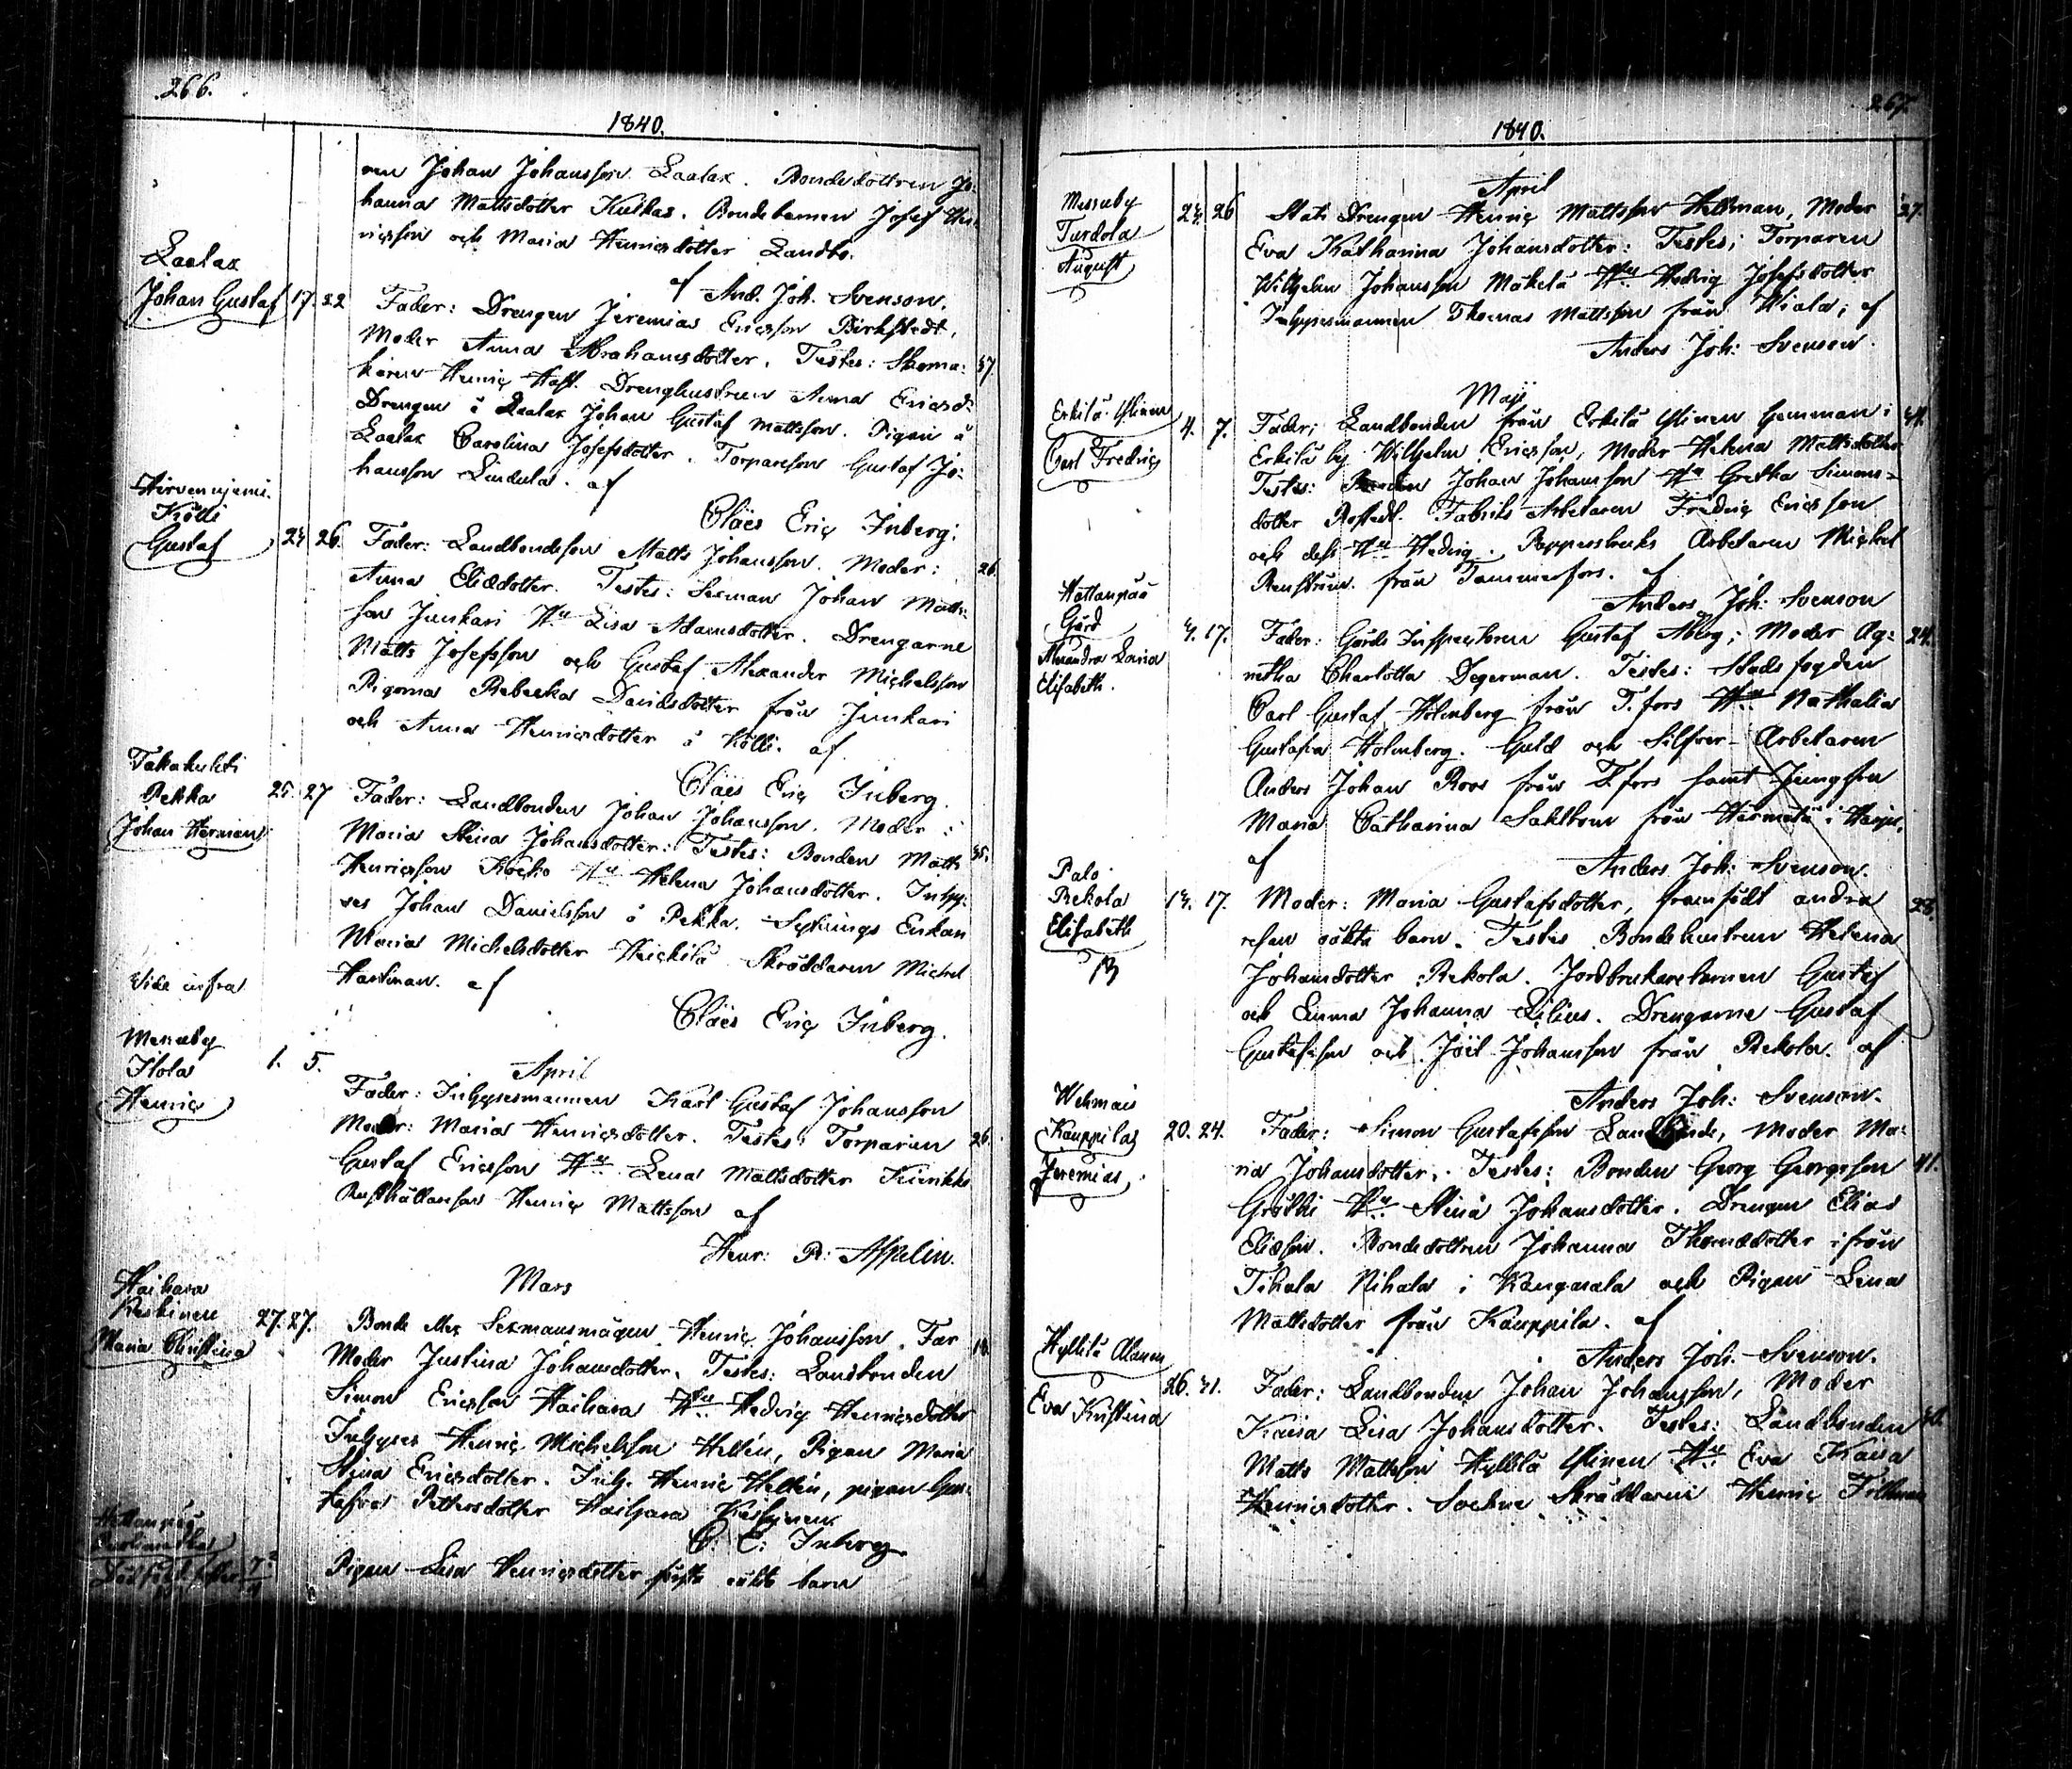 266.
1840.
ren Johan Johansson Laalax. Bondedottren Jo-
hanna Mattsdotter Kulkas. Bondebarnen Josef Hen-
ricsson och Maria Henricsdotter Landbo.
af And. Joh. Svenson.
Laalax
Johan Gustaf 17. 22 Fader: Drengen Jeremias Ericsson Birkstedt,
Moder Anna Abrahamsdotter. Testes: Skoma- 37.
karen Henric Haft. Drenghustrun Anna Ericsd:
Drengen å Laalax Johan Gustaf Mattsson. Pigan å
Laalax Carolina Josefsdotter. Torpareson Gustaf Jo-
hansson Lindula. af
Claës Eric Inberg.
Hirvenniemi
Kölli
Gustaf 24 26. Fader: Landbondeson Matts Johansson. Moder: 26.
Anna Eliædotter. Testes: Sexman Johan Matts-
son Junkari Hu Lisa Adamsdotter. Drengarne
Matts Josefsson och Gustaf Alexander Michelsson
Pigorna Rebecka Davidsdotter från Junkari
och Anna Henricsdotter å Kölli. af
Claës Eric Inberg.
Takahuhti
Pekka
Johan Herman 25. 27 Fader: Landbonden Johan Johansson. Moder:
Maria Stina Johansdotter: Testes: Bonden Matts 35.
Henricsson Kocko Hu Helena Johansdotter. Inhy-
ses Johan Danielsson å Pekka. Sytnings Enkan
Maria Michelsdotter Heickilä Skräddaren Michel
Hartman. af
Claës Eric Inberg.
Vide infra
April
Messuby
Itola
Henric 1. 5. Fader: Inhysesmannen Karl Gustaf Johansson
Moder: Maria Henricsdotter. Testes: Torparen 26.
Gustaf Ericsson Hu Lena Mattsdotter Kurikka
Rusthållareson Henric Mattsson af
Henr: R: Appelin.
Mars
Haihara
Keskinen
Maria Christina 27. 27. Bonde eller Sexmansmågen Henric Johansson. Far
Moder Justina Johansdotter. Testes: Landbonden
Simon Ericsson Haihara Hu Hedvig Henricsdotter
Inhyses Henric Michelsson Hellén, Pigan Maria
Stina Ericsdotter. Inh. Henric Hellén, pigan Gus-
tafva Pettersdotter Haihara Keskinen
C: E: Inberg.
Hattanpää
Pigan Lisa Henricsdotter första oäkta barn
267.
1840.
April
Messuby
Turdola
August 24. 26 Stats Drengen Henric Mattsson Hellman, Moder 27.
Eva Katharina Johansdotter: Testes; Torparen
Wilhelm Johansson Mäkelä Hu Hedvig Josefsdotter
Inhysesmannen Thomas Mattsson från Wiala; af
Anders Joh: Svenson.
Maji
Erkilä Ylinen
Carl Fredric 4. 7. Fader; Landbonden från Erkilä Ylinen hemman i
Erkilä by Wilhelm Ericsson, Moder Helena Mattsdotter
Testes: Johan Johansson Hu Gretha Simons-
dotter Rostedt. Fabriks Arbetaren Fredric Ericsson
och dess Hu Hedvig. Pappersbruks Arbetaren Mickel
Renström från Tammerfors. af
Anders Joh: Svenson
Hattanpää
Gård
Alexandra Lovisa
Elisabeth. 4. 17. Fader: Gårds Inspectoren Gustaf Åberg; Moder Ag- 24.
netha Charlotta Degerman. Testes: Stadsfogden
Carl Gustaf Holmberg från T.fors Hu Nathalia
Gustafva Holmberg. Guld och Silfver-Arbetaren
Anders Johan Roos från T.fors samt Jungfrun
Maria Catharina Sahlbom från
af
Anders Joh: Svenson.
Palo
Rekola
Elisabeth 14. 17. Moder: Maria Gustafsdotter, framfödt andra 28.
resan oäkta barn. Testes Bondehustrun Helena
Johansdotter Rekola. Jordbrukarebarnen Gustaf
och Emma Johanna Lilius. Drengarne Gustaf
Gustafsson och Joël Johansson från Rekola. af
Anders Joh: Svenson.
Wehmais
Kauppila
Jeremias 20. 24. Fader: Simon Gustafsson Landbonde, Moder Ma-
ria Johansdotter. Testes: Bonden Georg Georgsson 41.
Gröthi Hu Stina Johansdotter. Drengen Elias
Eliæson. Bondedottren Johanna Thomædotter ifrån
Tihala Nihala i Kangasala och Pigan Lena
Mattsdotter från Kauppila. af
Anders Joh. Svenson.
Hyllilä Alanen
Eva Kristina 26. 31. Fader: Landbonden Johan Johansson, Moder
Kaisa Lisa Johansdotter. Testes: Landbonden
Matts Mattsson Hyllilä Ylinen Hu Eva Kaisa
Henricsdotter. Sockne Skräddaren Henric Fillman